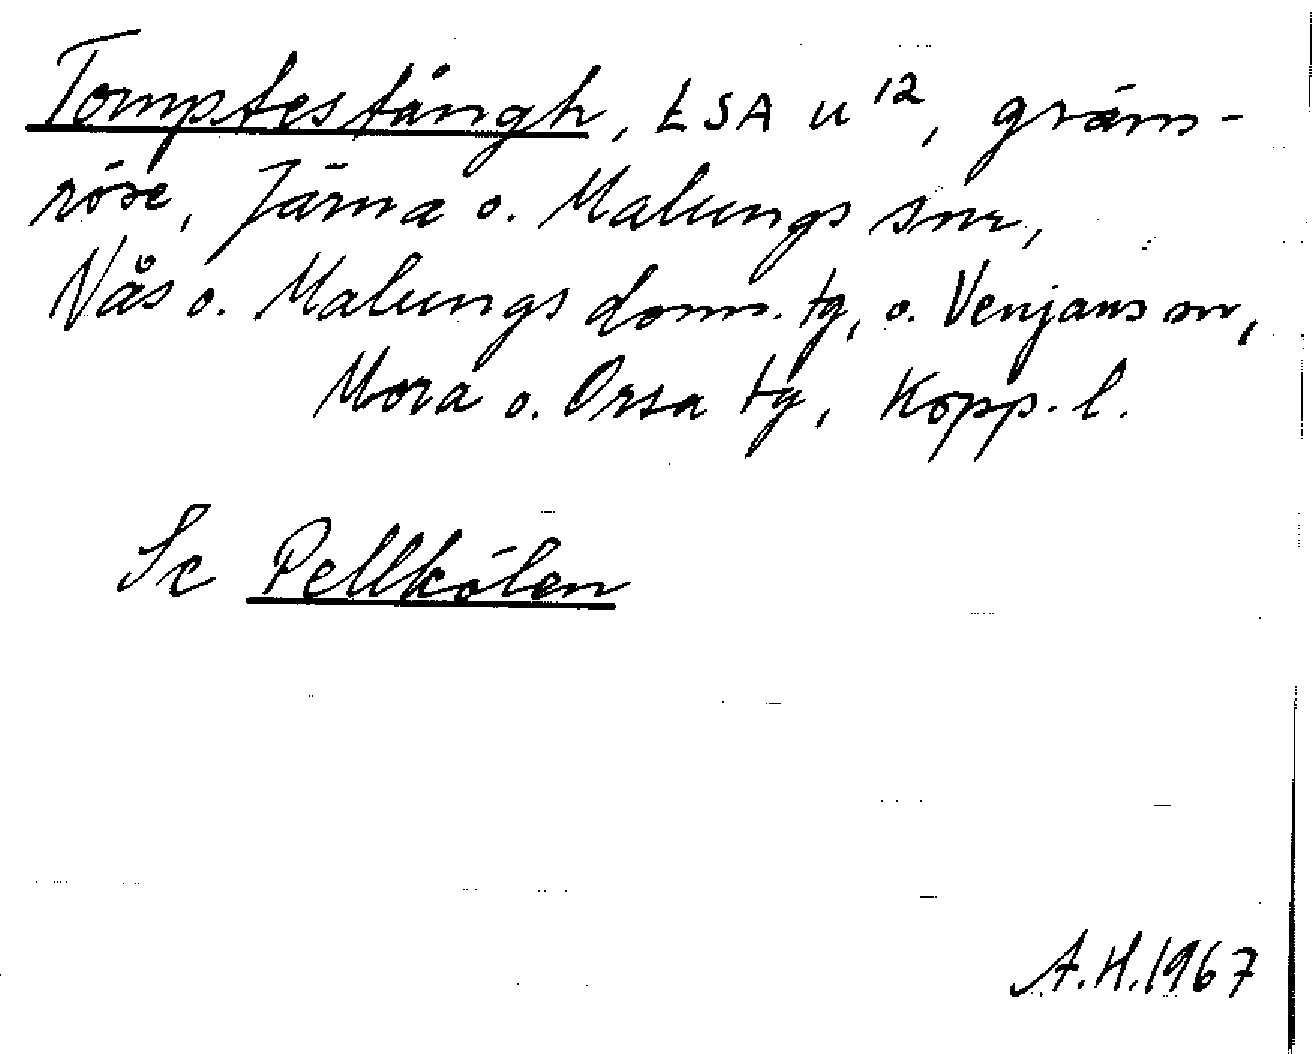 Tomptestångh, LSA U 12, gräns-
röse, Järna o. Malungs snr,
Nås o. Malungs doms. tg, o. Venjans sn,
Mora o. Orsa tg, Kopp. l.
Se Pellkölen
A.H. 1967